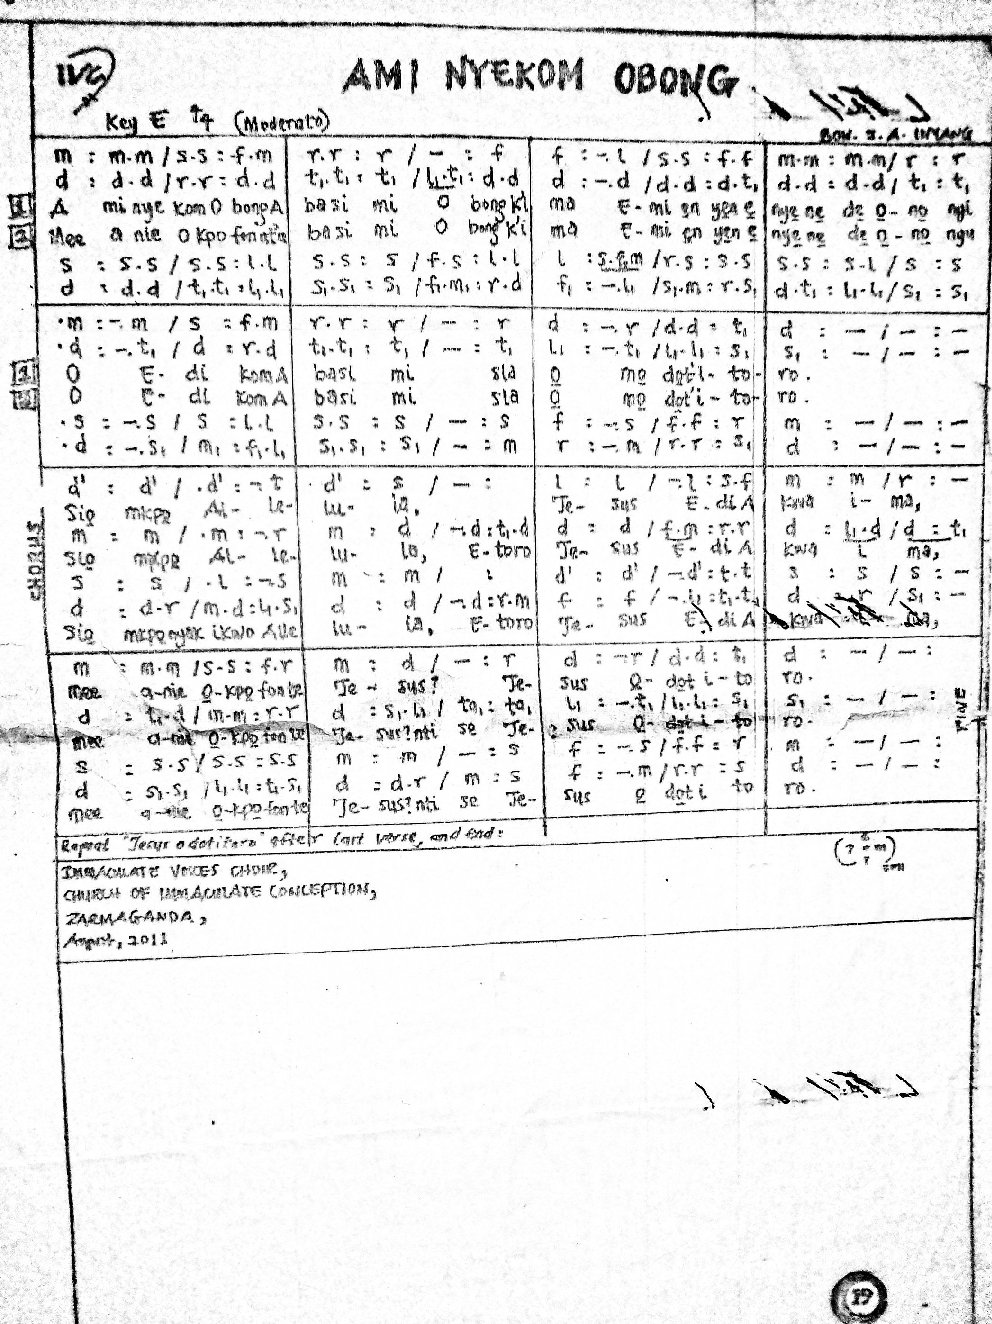 IVC
AMI NYEKOM OBONG
Key E (Moderato)
BON. S. A. INYANG
m : m.m / s.s : f.m r.r : r / – : f f : –.l / s.s : f.f m.m : m.m / r : r
d : d.d / r.r : d.d t₁.t₁ : t₁ / l₁.t₁ : d.d d : –.d / d.d : d.t₁ d.d : d.d / t₁ : t₁
1 A mi nye kom O bong A basi mi O bong ki ma E- mi en yen e nye ne de O - no nyi
2 Mee a nie O kpo fon nte basi mi O bong ki ma E- mi en yen e nye ne de O - no ngu
s : s.s / s.s : l.l s.s : s / f.s : l.l l : s.f.m / r.s : s.s s.s : s.l / s : s
d : d.d / t₁.t₁ : l₁.l₁ s₁.s₁ : s₁ / f₁.m₁ : r.d f₁ : –.l₁ / s₁.m : r.s₁ d.t₁ : l₁.l₁ / s₁ : s₁
.m : –.m / s : f.m r.r : r / – : r d : –.r / d.d : t₁ d : – / – : –
.d : –.t₁ / d : r.d t₁.t₁ : t₁ / – : t₁ l₁ : –.t₁ / l₁.l₁ : s₁ s₁ : – / – : –
1 O E- di kom A basi mi sia O mo dot i- to- ro.
O E- di kom A basi mi sia O mo dot i - to- ro.
.s : –.s / s : l.l s.s : s / – : s f : –.s / f.f : r m : – / – : –
.d : –.s₁ / m₁ : f₁.l₁ s₁.s₁ : s₁ / – : m r : –.m / r.r : s₁ d : – / – : –
CHORUS
d' : d' / .d' : –.t d' : s / – : l : l / –.l : s.f m : m / r : –
Sio mkpo Al- le- lu- ia, Je- sus E. di A kwa i- ma,
m : m / .m : –.r m : d / –.d : t₁.d d : d / f.m : r.r d : l₁.d / d : t₁
sio mkpo Al- le- lu- ia, E-toro Je- sus E- di A kwa i ma,
s : s / .l : –.s m : m / : d' : d' / –.d' : t.t s : s / s : –
d : d.r / m.d : l₁.s₁ d : d / –.d : r.m f : f / –.l₁ : t₁.t₁ d : r / s₁ : –
Sio mkpo nyak ikwo Alle lu- ia, E-toro Je- sus E- di A kwa i ma,
m : m.m / s.s : f.r m : d / – : r d : –.r / d.d : t₁ d : – / – :
mee a-nie O-kpo fon te Je- sus? Je- sus O- dot i - to ro.
d : t₁.d / m.m : r.r d : s₁.l₁ / to₁ : to₁ l₁ : –.t₁ / l₁.l₁ : s₁ s₁ : – / – :
mee a-nie O-kpo fon te Je- sus? nti se Je- sus O- dot i - to ro.
s : s.s / s.s : s.s m : m / – : s f : –.s / f.f : r m : – / – :
d : s₁.s₁ / l₁.l₁ : t₁.s₁ d : d.r / m : s f : –.m / r.r : s d : – / – :
mee a-nie O-kpo fon te Je- sus? nti se Je- sus o dot i to ro.
FINE
Repeat "Jesus odotitoro" after last verse, and end:
IMMACULATE VOICES CHOIR,
CHURCH OF IMMACULATE CONCEPTION,
ZARMAGANDA,
August, 2011
19